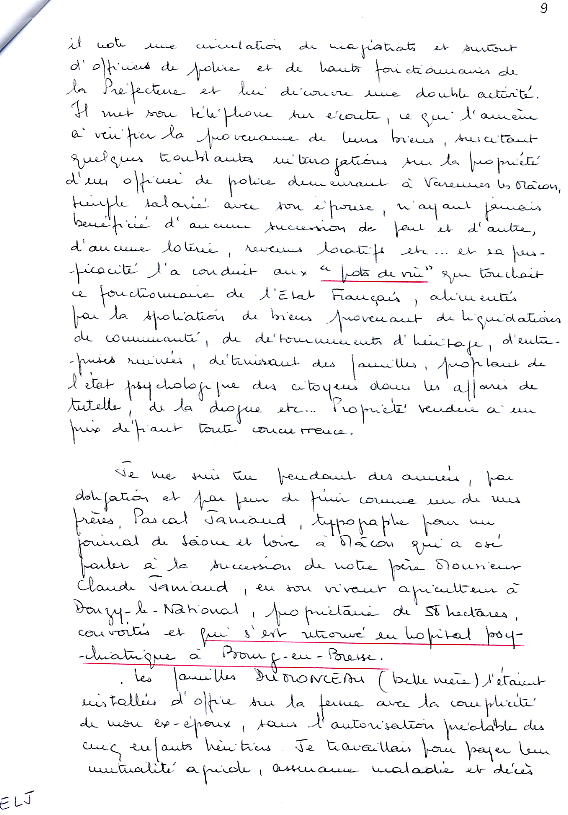 9
il note une circulation de magistrats et surtout
d'officiers de police et de hauts fonctionnaires de
la Préfecture et lui découvre une double activité.
Il met son téléphone sur écoute, ce qui l'amène
à vérifier la provenance de leurs biens, suscitant
quelques troublantes interrogations sur la propriété
d'un officier de police demeurant à Varennes les Mâcon,
simple salarié avec son épouse, n'ayant jamais
bénéficié d'aucune succession de part et d'autre,
d'aucune loterie, revenus locatifs etc... et sa pers-
-picacité l'a conduit aux "pots de vin" que touchait
ce fonctionnaire de l'Etat Français, alimentés
par la spoliation de biens provenant de liquidations
de communauté, de détournements d'héritage, d'entre-
-prises ruinées, détruisant des familles, profitant de
l'état psychologique des citoyens dans les affaires de
tutelle, de la drogue etc... Propriété vendue à un
prix défiant toute concurrence.
Je me suis tue pendant des années, par
obligation et par peur de finir comme un de mes
frères, Pascal Jamaud, typographe pour un
journal de Saône et Loire à Mâcon qui a osé
parler à la succession de notre père Monsieur
Claude Jamaud, en son vivant apiculteur à
Donzy-le-National, propriétaire de 51 hectares,
convoités et qui s'est retrouvé en hopital psy-
-chiatrique à Bourg-en-Bresse.
. Les familles DUMONCEAU (belle mère) s'étaient
installées d'office sur la ferme avec la complicité
de mon ex-époux, sans l'autorisation préalable des
cinq enfants héritiers. Je travaillais pour payer leur
mutualité agricole, assurance maladie et décès
ELJ